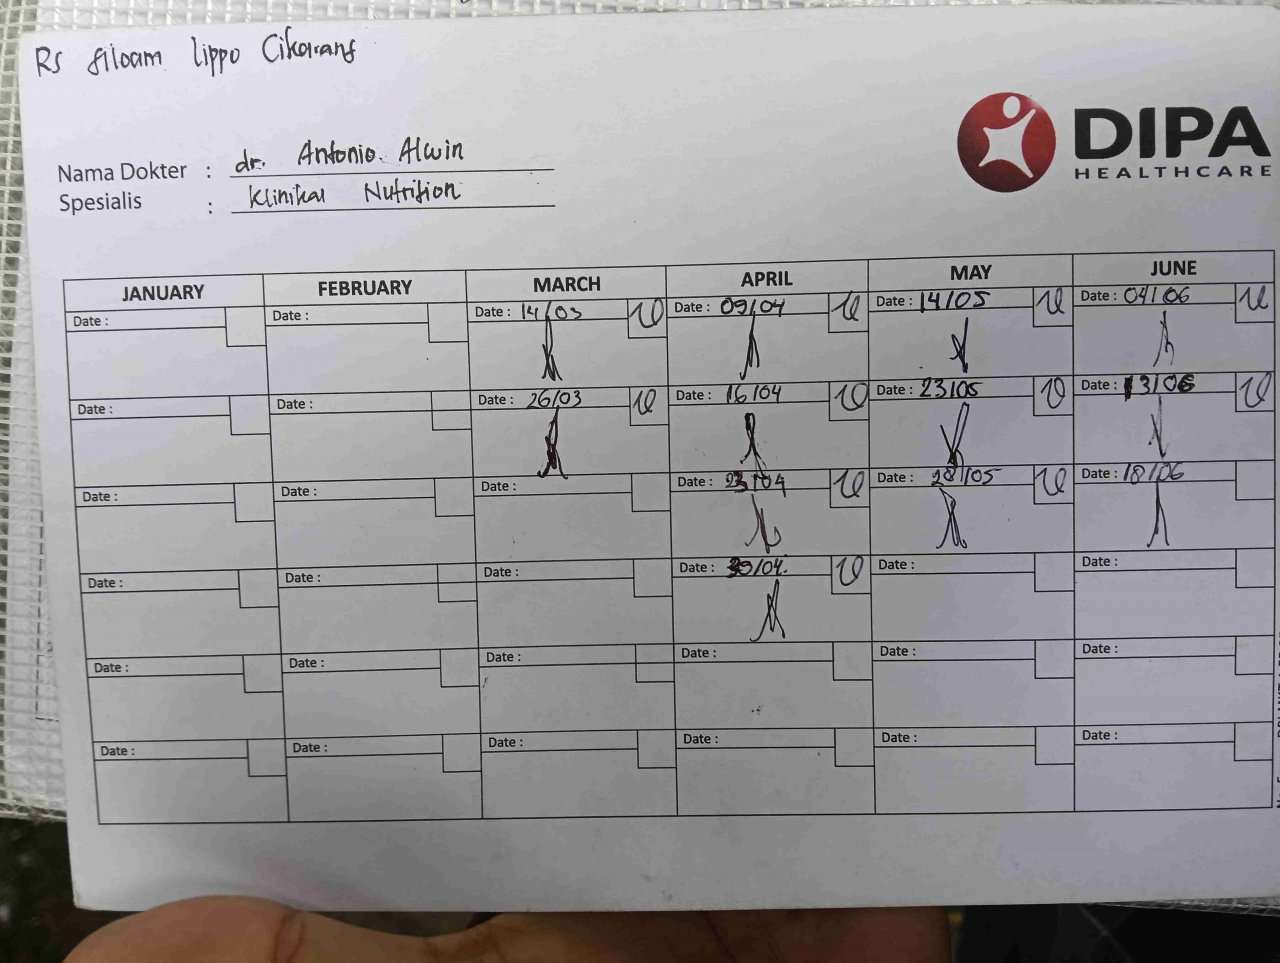 Rs Siloam Lippo Cikarang
DIPA
HEALTHCARE
Nama Dokter : dr. Antonio Alwin
Spesialis : Klinikal Nutrition
JANUARY FEBRUARY MARCH APRIL MAY JUNE
Date : Date : Date : 14/03 Date : 09/04 Date : 14/05 Date : 04/06
Date : Date : Date : 26/03 Date : 16/04 Date : 23/05 Date : 13/06
Date : Date : Date : Date : 23/04 Date : 28/05 Date : 18/06
Date : Date : Date : Date : 30/04 Date : Date :
Date : Date : Date : Date : Date : Date :
Date : Date : Date : Date : Date : Date :